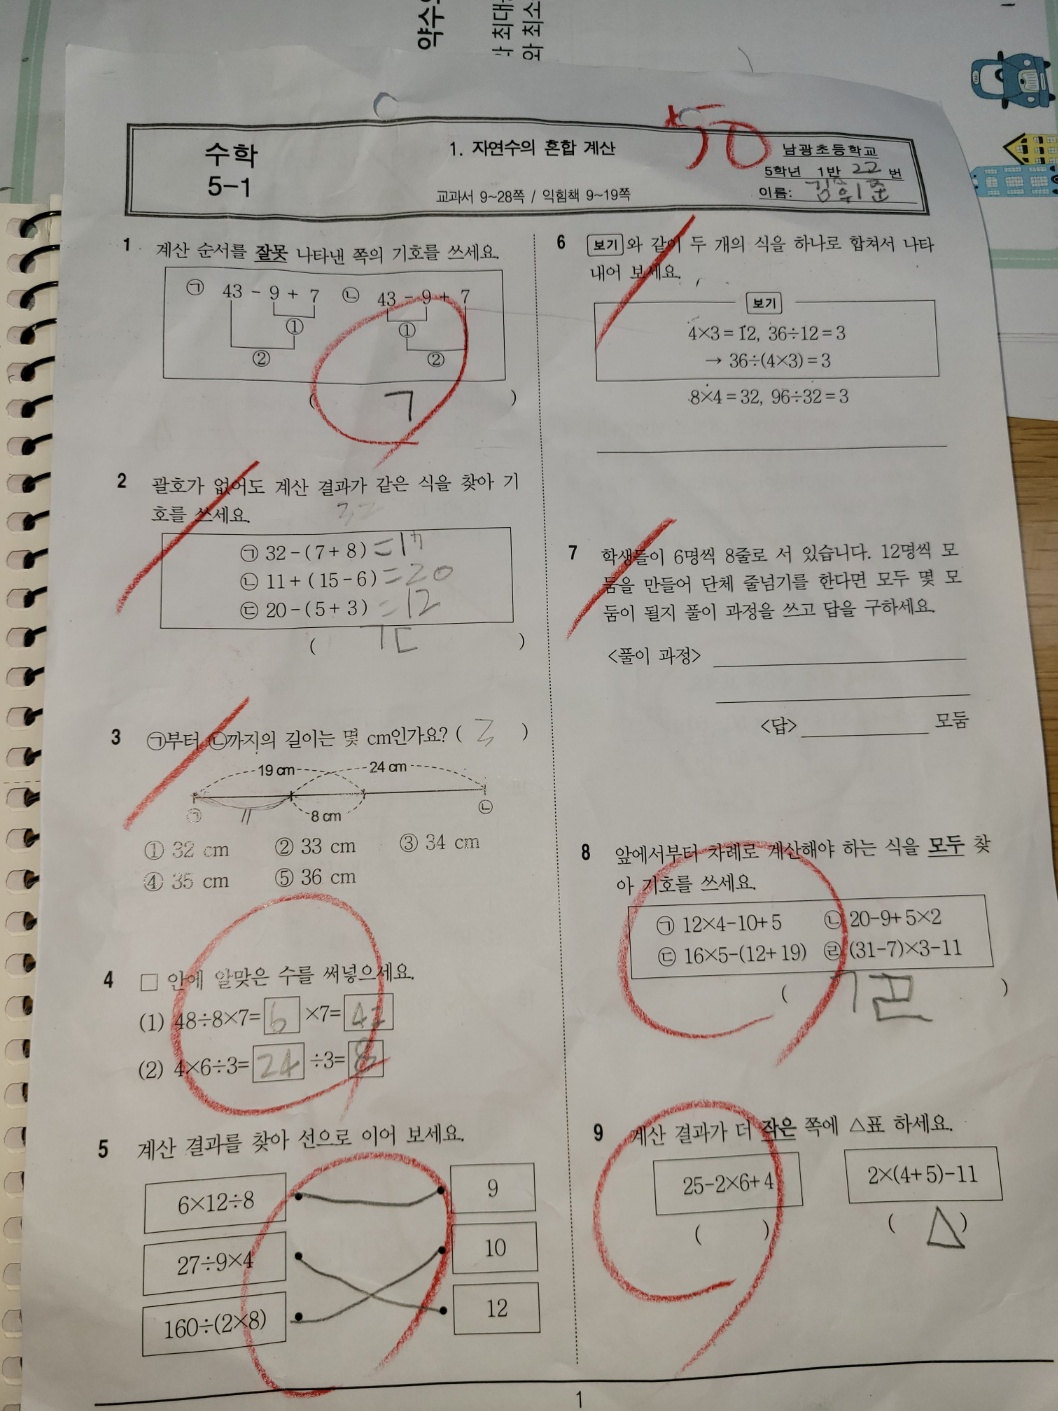 약수의
최대
와 최소
수학
5-1
1. 자연수의 혼합 계산
교과서 9~28쪽 / 익힘책 9~19쪽
50
남광초등학교
5학년 1반 22번
이름:
1 계산 순서를 잘못 나타낸 쪽의 기호를 쓰세요.
㉠ 43 - 9 + 7 ㉡ 43 - 9 + 7
① ①
② ②
( ㄱ )
2 괄호가 없어도 계산 결과가 같은 식을 찾아 기
호를 쓰세요.
㉠ 32-(7+8) =17
㉡ 11+(15-6) =20
㉢ 20-(5+3) =12
( ㄱㄷ )
3 ㉠부터 ㉡까지의 길이는 몇 cm인가요? ( 3 )
19 cm 24 cm
㉠ 11 8 cm ㉡
① 32 cm ② 33 cm ③ 34 cm
④ 35 cm ⑤ 36 cm
4 □ 안에 알맞은 수를 써넣으세요.
(1) 48÷8×7= 6 ×7= 42
(2) 4×6÷3= 24 ÷3= 8
5 계산 결과를 찾아 선으로 이어 보세요.
6×12÷8 9
27÷9×4 10
160÷(2×8) 12
6 보기 와 같이 두 개의 식을 하나로 합쳐서 나타
내어 보세요.
보기
4×3=12, 36÷12=3
→ 36÷(4×3)=3
8×4=32, 96÷32=3
7 학생들이 6명씩 8줄로 서 있습니다. 12명씩 모
둠을 만들어 단체 줄넘기를 한다면 모두 몇 모
둠이 될지 풀이 과정을 쓰고 답을 구하세요.
<풀이 과정>
<답> 모둠
8 앞에서부터 차례로 계산해야 하는 식을 모두 찾
아 기호를 쓰세요.
㉠ 12×4-10+5 ㉡ 20-9+5×2
㉢ 16×5-(12+19) ㉣ (31-7)×3-11
( ㄱ ㄹ )
9 계산 결과가 더 작은 쪽에 △표 하세요.
25-2×6+4 2×(4+5)-11
( ) ( △ )
1